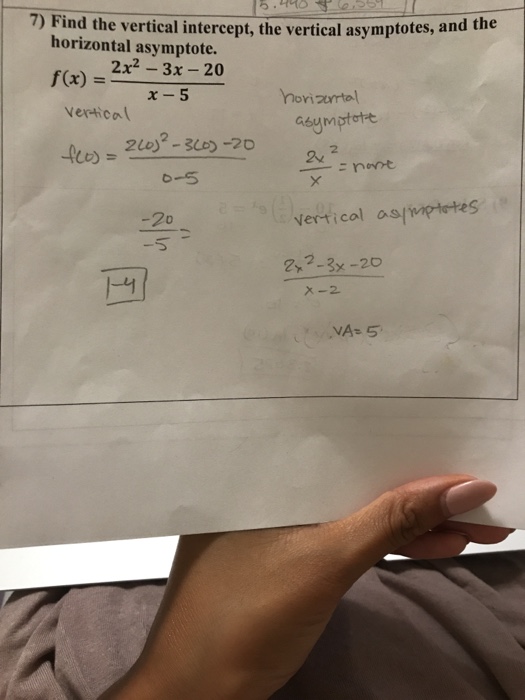 7) Find the vertical intercept, the vertical asymptotes, and the
horizontal asymptote.
f(x) = 2x² – 3x – 20 / x – 5
vertical
f(0) = 2(0)² - 3(0) - 20 / 0-5
-20 / -5 =
-4
horizontal
asymptote
2x² / x = none
vertical asymptotes
2x²-3x-20 / x-2
VA= 5